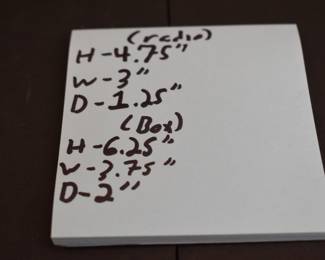 (radio)
H-4.75"
W-3"
D-1.25"
(Box)
H-6.25"
W-3.75"
D-2"